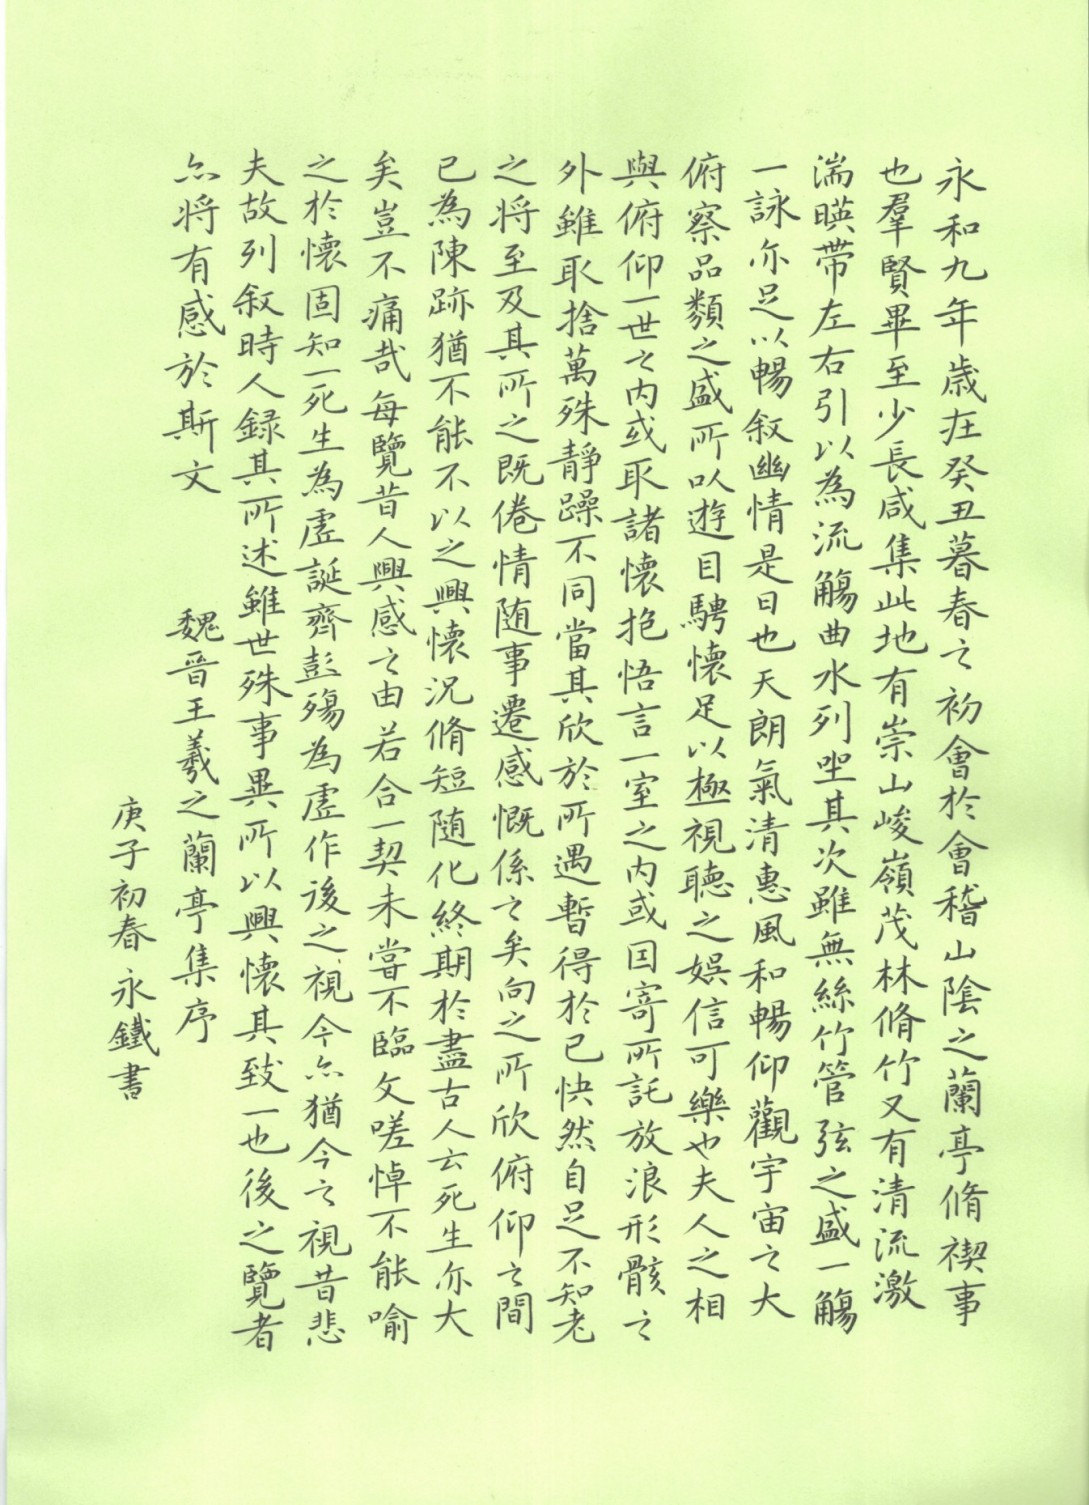 永和九年歳在癸丑暮春之初會於會稽山陰之蘭亭脩禊事
也羣賢畢至少長咸集此地有崇山峻嶺茂林脩竹又有清流激
湍暎帶左右引以為流觴曲水列坐其次雖無絲竹管弦之盛一觴
一詠亦足以暢叙幽情是日也天朗氣清惠風和暢仰觀宇宙之大
俯察品類之盛所以遊目騁懷足以極視聽之娯信可樂也夫人之相
與俯仰一世之內或取諸懷抱悟言一室之內或因寄所託放浪形骸之
外雖取捨萬殊靜躁不同當其欣於所遇暫得於己怏然自足不知老
之將至及其所之既倦情随事遷感慨係之矣向之所欣俯仰之間
已為陳跡猶不能不以之興懷況脩短随化終期於盡古人云死生亦大
矣豈不痛哉每覽昔人興感之由若合一契未嘗不臨文嗟悼不能喻
之於懷固知一死生為虛誕齊彭殤為虛作後之視今亦猶今之視昔悲
夫故列叙時人録其所述雖世殊事異所以興懷其致一也後之覽者
亦將有感於斯文 魏晉王羲之蘭亭集序
庚子初春永鐵書